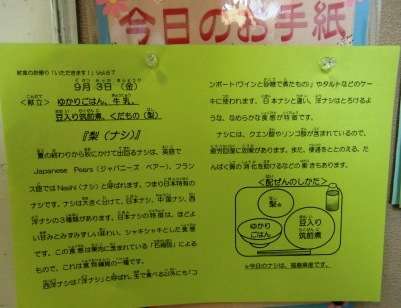 今日のお手紙
給食のお便り「いただきます！」Vol.67
9月3日（金）
＜献立＞ ゆかりごはん、牛乳、
豆入り筑前煮、くだもの（梨）
『梨（ナシ）』
夏の終わりから秋にかけて出回るナシは、英語で
Japanese Pears（ジャパニーズ ペアー）、フラン
ス語では Nashi（ナシ）と呼ばれます。つまり日本特有の
ナシです。ナシは大きく分けて、日本ナシ、中国ナシ、西
洋ナシの3種類があります。日本ナシの特徴は、ほどよ
い甘みとみずみずしい味わい、シャキシャキとした食感
です。この食感は果肉に含まれている「石細胞」による
もので、これは食物繊維の一種です。
西洋ナシは「洋ナシ」と呼ばれ、生で食べる以外にも「コ
ンポート（ワインと砂糖で煮たもの）」やタルトなどのケー
キに使われます。日本ナシと違い、洋ナシはとろけるよ
うな、なめらかな食感が特徴です。
ナシには、クエン酸やリンゴ酸が含まれているので、
疲労回復に効果があります。また、便通をととのえる、た
んぱく質の消化を助けるなどの働きもあります。
＜配ぜんのしかた＞
梨
ゆかり
ごはん
豆入り
筑前煮
☆今日のナシは、福島県産です。